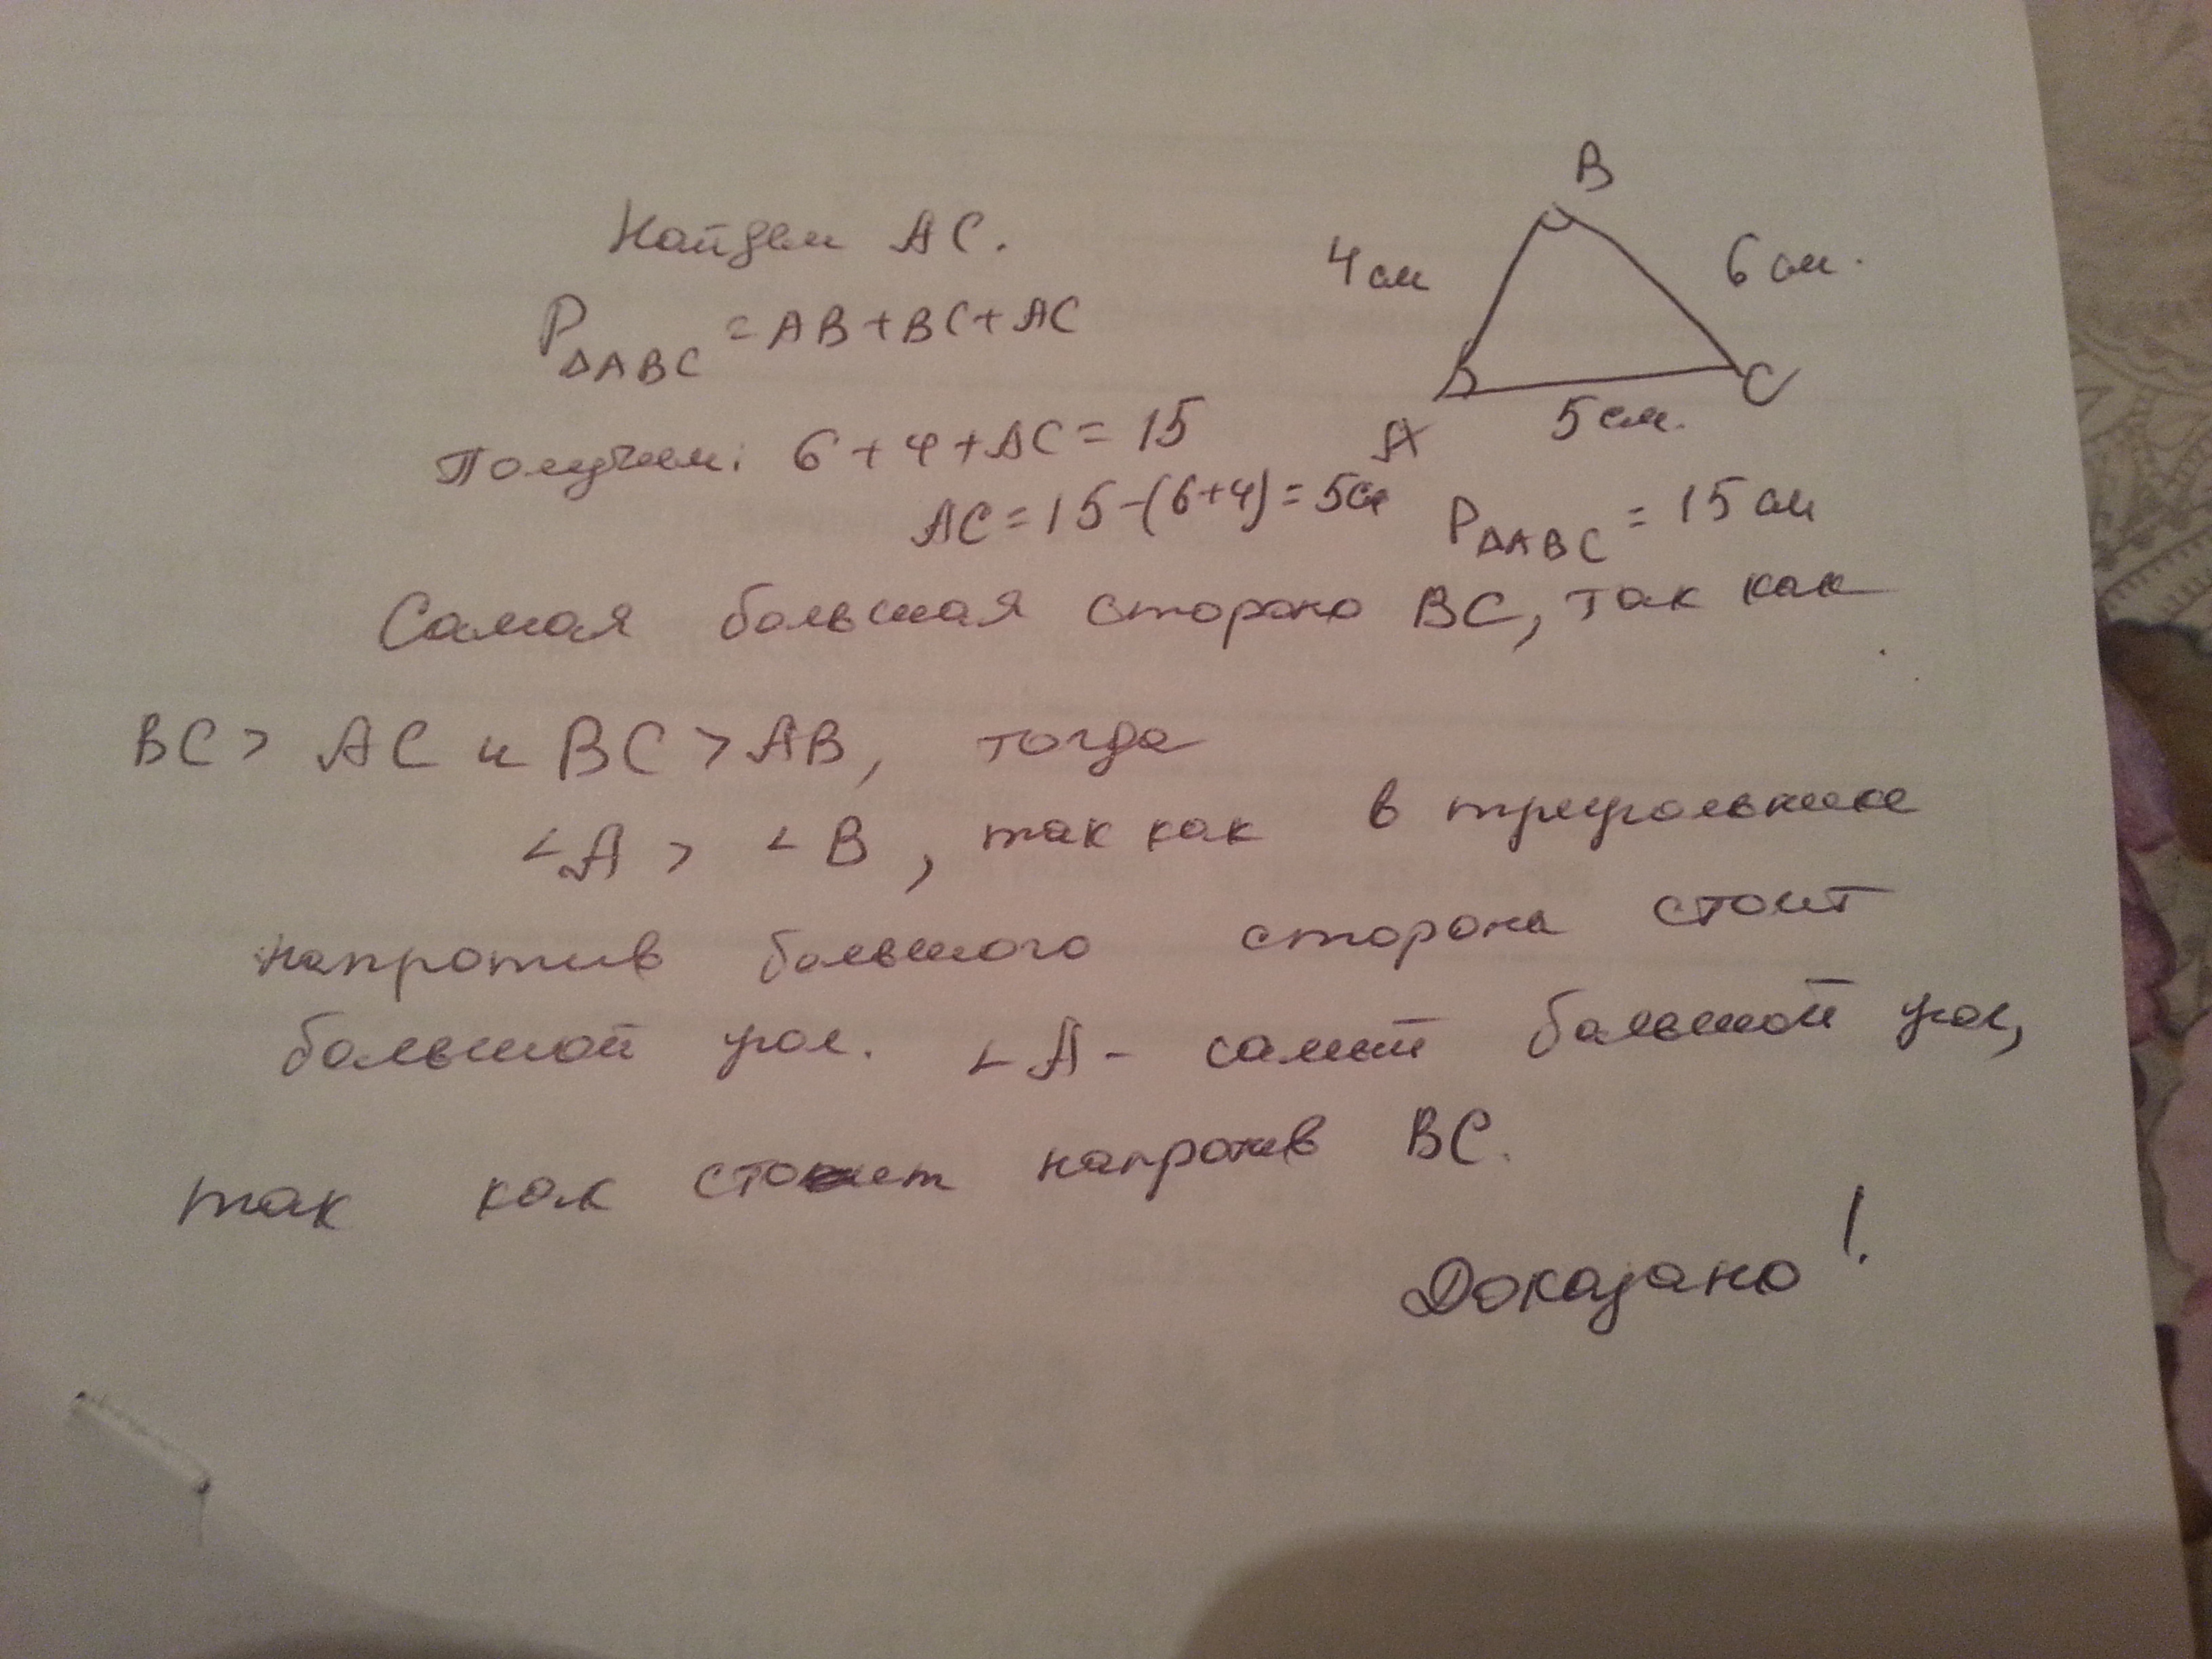 Найдем АС.
P∆ABC = AB + BC + AC
Получим: 6 + 4 + AC = 15
AC = 15 - (6+4) = 5см
B
4см
6 см.
A
C
5 см.
P∆ABC = 15 см
Самая большая сторона BC, так как
BC > AC и BC > AB, тогда
∠A > ∠B, так как в треугольнике
напротив большого сторона стоит
большой угол. ∠A - самый большой угол,
так как стоит напротив BC.
Доказано!